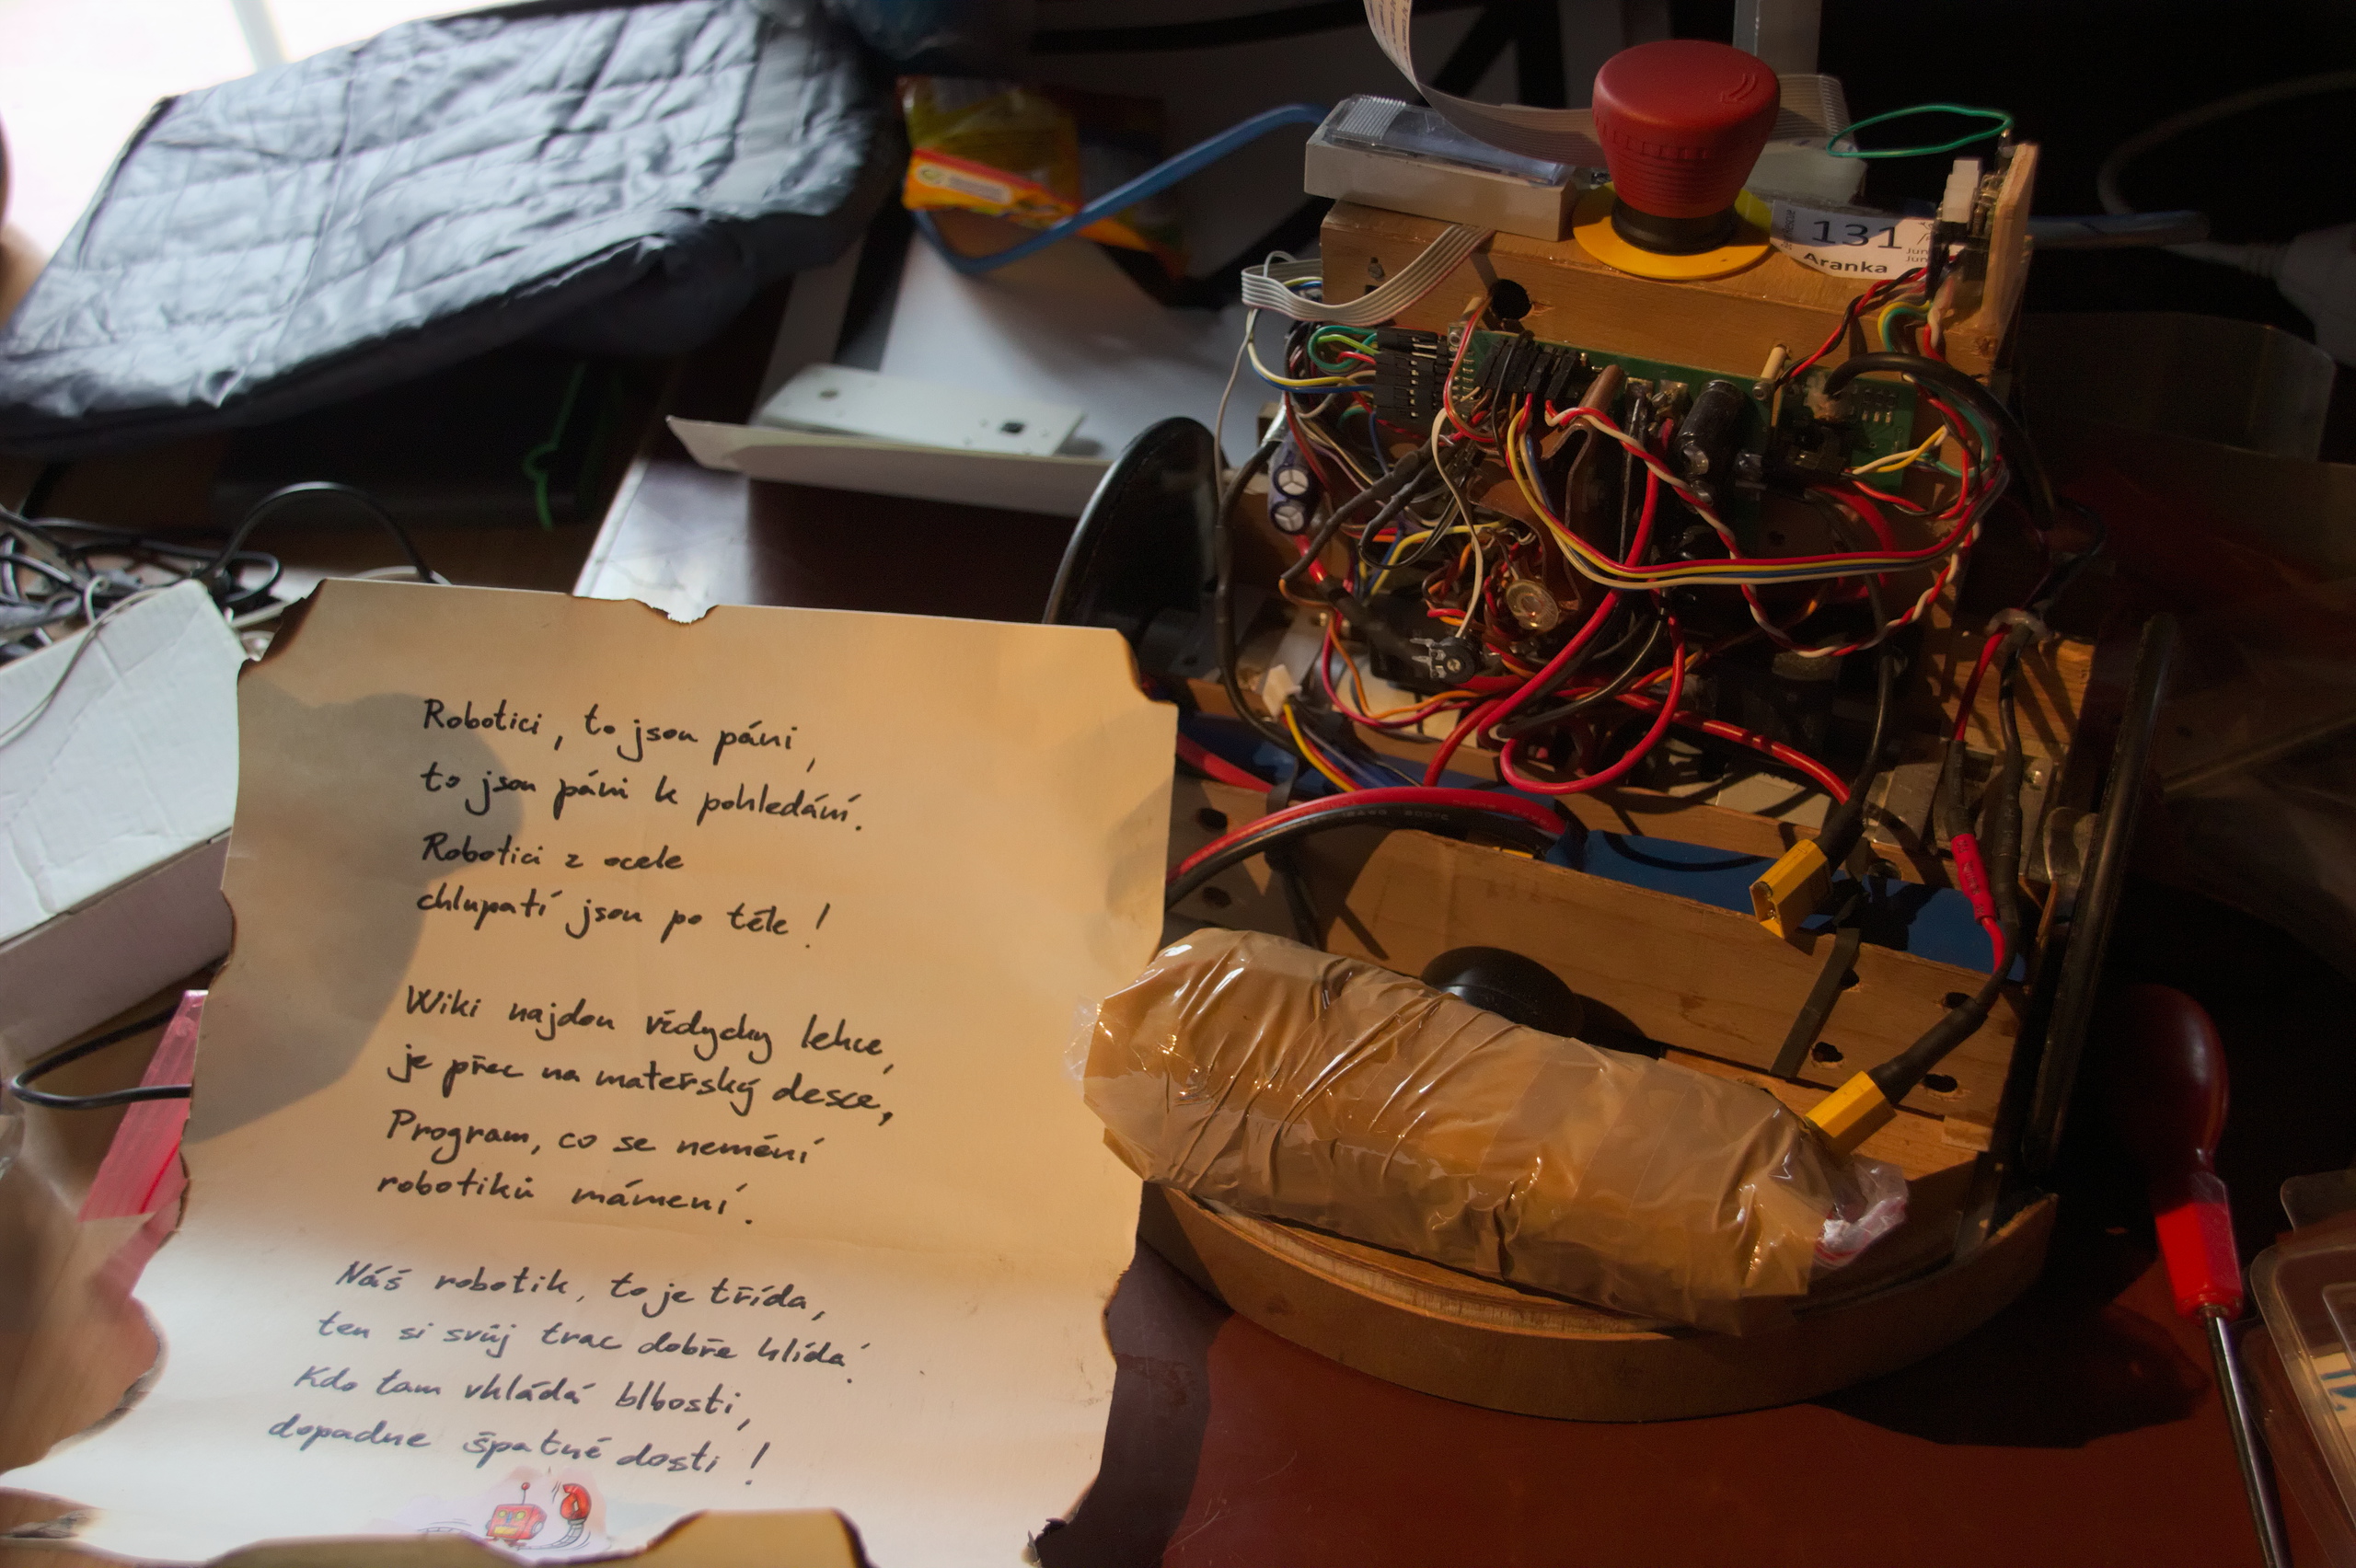 131
Aranka
Robotici, to jsou páni,
to jsou páni k pohledání.
Robotici z ocele
chlupatí jsou po těle!
Wiki najdou vždycky lehce,
je přec na mateřský desce,
Program, co se nemění
robotiků mámení.
Náš robotik, to je třída,
ten si svůj trac dobře hlídá!
Kdo tam vhládá blbosti,
dopadne špatně dosti!